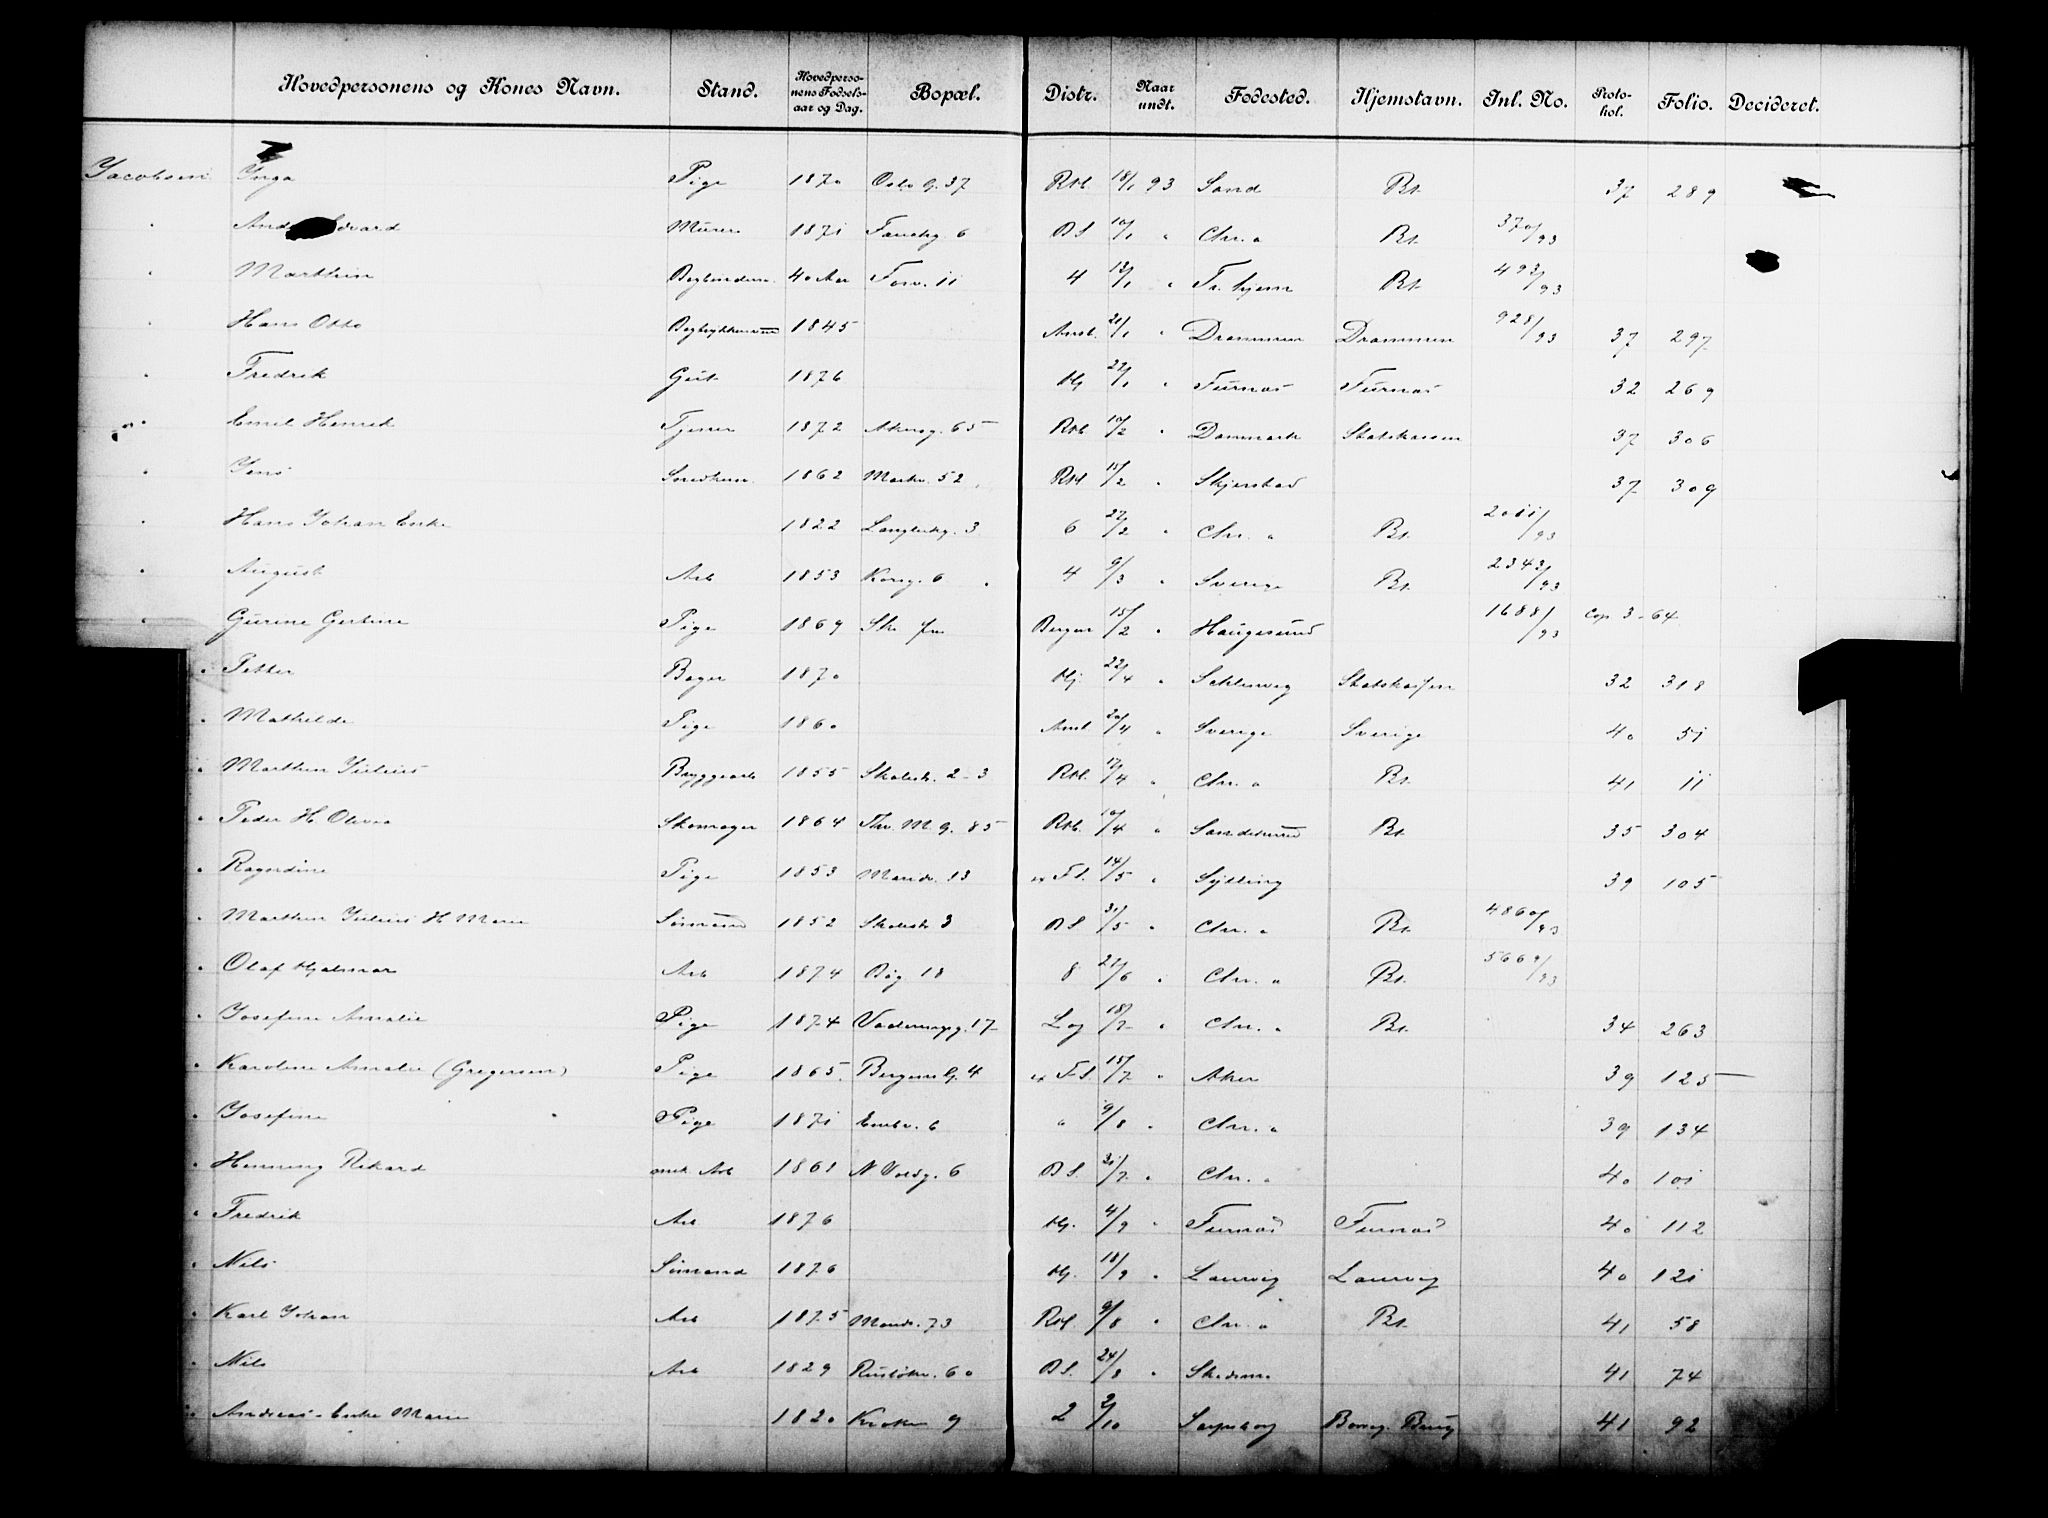 Hovedpersonens og Kones Navn. Stand. Hovedpersonens Fødselsaar og Dag. Bopæl. Distr. Naar undt. Fødested. Hjemstavn. Inl. No. Protokol. Folio. Decideret.
Jacobsen Inga Pige 1870 Oslo G. 37 Rtl. 18/1 93 Sand Bt. 37 289
" Edvard Murer 1871 6 B S 10/1 " Chr. a Bt. 370/93
" Marthin 40 Aar Torv. 11 4 12/1 " Tr. hjem Bt. 493/93
" Hans Otto 1845 Anst. 21/1 " Drammen Drammen 928/93 37 297
" Fredrik Gut 1876 Hj 22/1 " Furnæs Furnæs 32 269
" Emil Henrik Tjener 1872 Akersg. 65 Rtl 10/2 " Danmark Statskassen 37 306
" Jens 1862 Markv. 52 Rtl 15/2 " Skjerstad 37 309
" Hans Johan Enke 1822 3 6 27/2 " Chr. a Bt. 2011/93
" August Arb 1853 Korsg. 6 4 9/3 " Sverige Bt. 2343/93
" Gurine Gurtine Pige 1869 Bergen 15/2 " Haugesund 1688/93 Cop 3 - 64
" Petter Bager 1870 Hj. 22/4 " Schleswig Statskassen 32 318
" Mathilde Pige 1860 Anst 20/4 " Sverige Sverige 40 51
" Marthin Julius Bryggearb 1855 Skolest. 2-3 Rtl. 12/4 " Chr. a Bt. 41 11
" Peder H. Olevia Skomager 1864 Thv. M. G. 85 Rtl. 10/4 " Sandsund Bt. 35 304
" Ragndine Pige 1853 Mandr. 13 ex Fl. 14/5 " Sylling 39 105
" Marthin Julius H Marie Sømand 1852 Skolest 3 B S 31/5 " Chr. a Bt. 4860/93
" Olaf Hjalmar Arb 1874 Bøg. 18 8 21/6 " Chr. a Bt. 5669/93
" Josefine Amalie Pige 1874 17 Log 18/7 " Chr. a Bt. 34 263
" Karoline Amalie (Gregersen) Pige 1865. Bergens G. 4 ex Fl. 15/7 " Aker 39 125
" Josefine Pige 1871 6 " 9/8 " Chr. a 39 134
" Henning Rikard mek Arb 1868 N Voldg. 6 B S. 31/7 " Chr. a 40 101
" Fredrik Arb 1876 Hj. 4/9 " Furnæs Furnæs 40 112
" Nils Sømand 1876 Hj. 18/9 " Laurvig Laurvig 40 121
" Karl Johan Arb 1875 Mandr. 73 Rtl. 9/8 " Chr. a Bt. 41 58
" Nils Arb 1829 Rusløkv. 60 B S. 24/8 " Skedsmo 41 74
" Andreas - Enke Marie 1820 Kroken 9 2 2/10 Sarpsborg 41 92